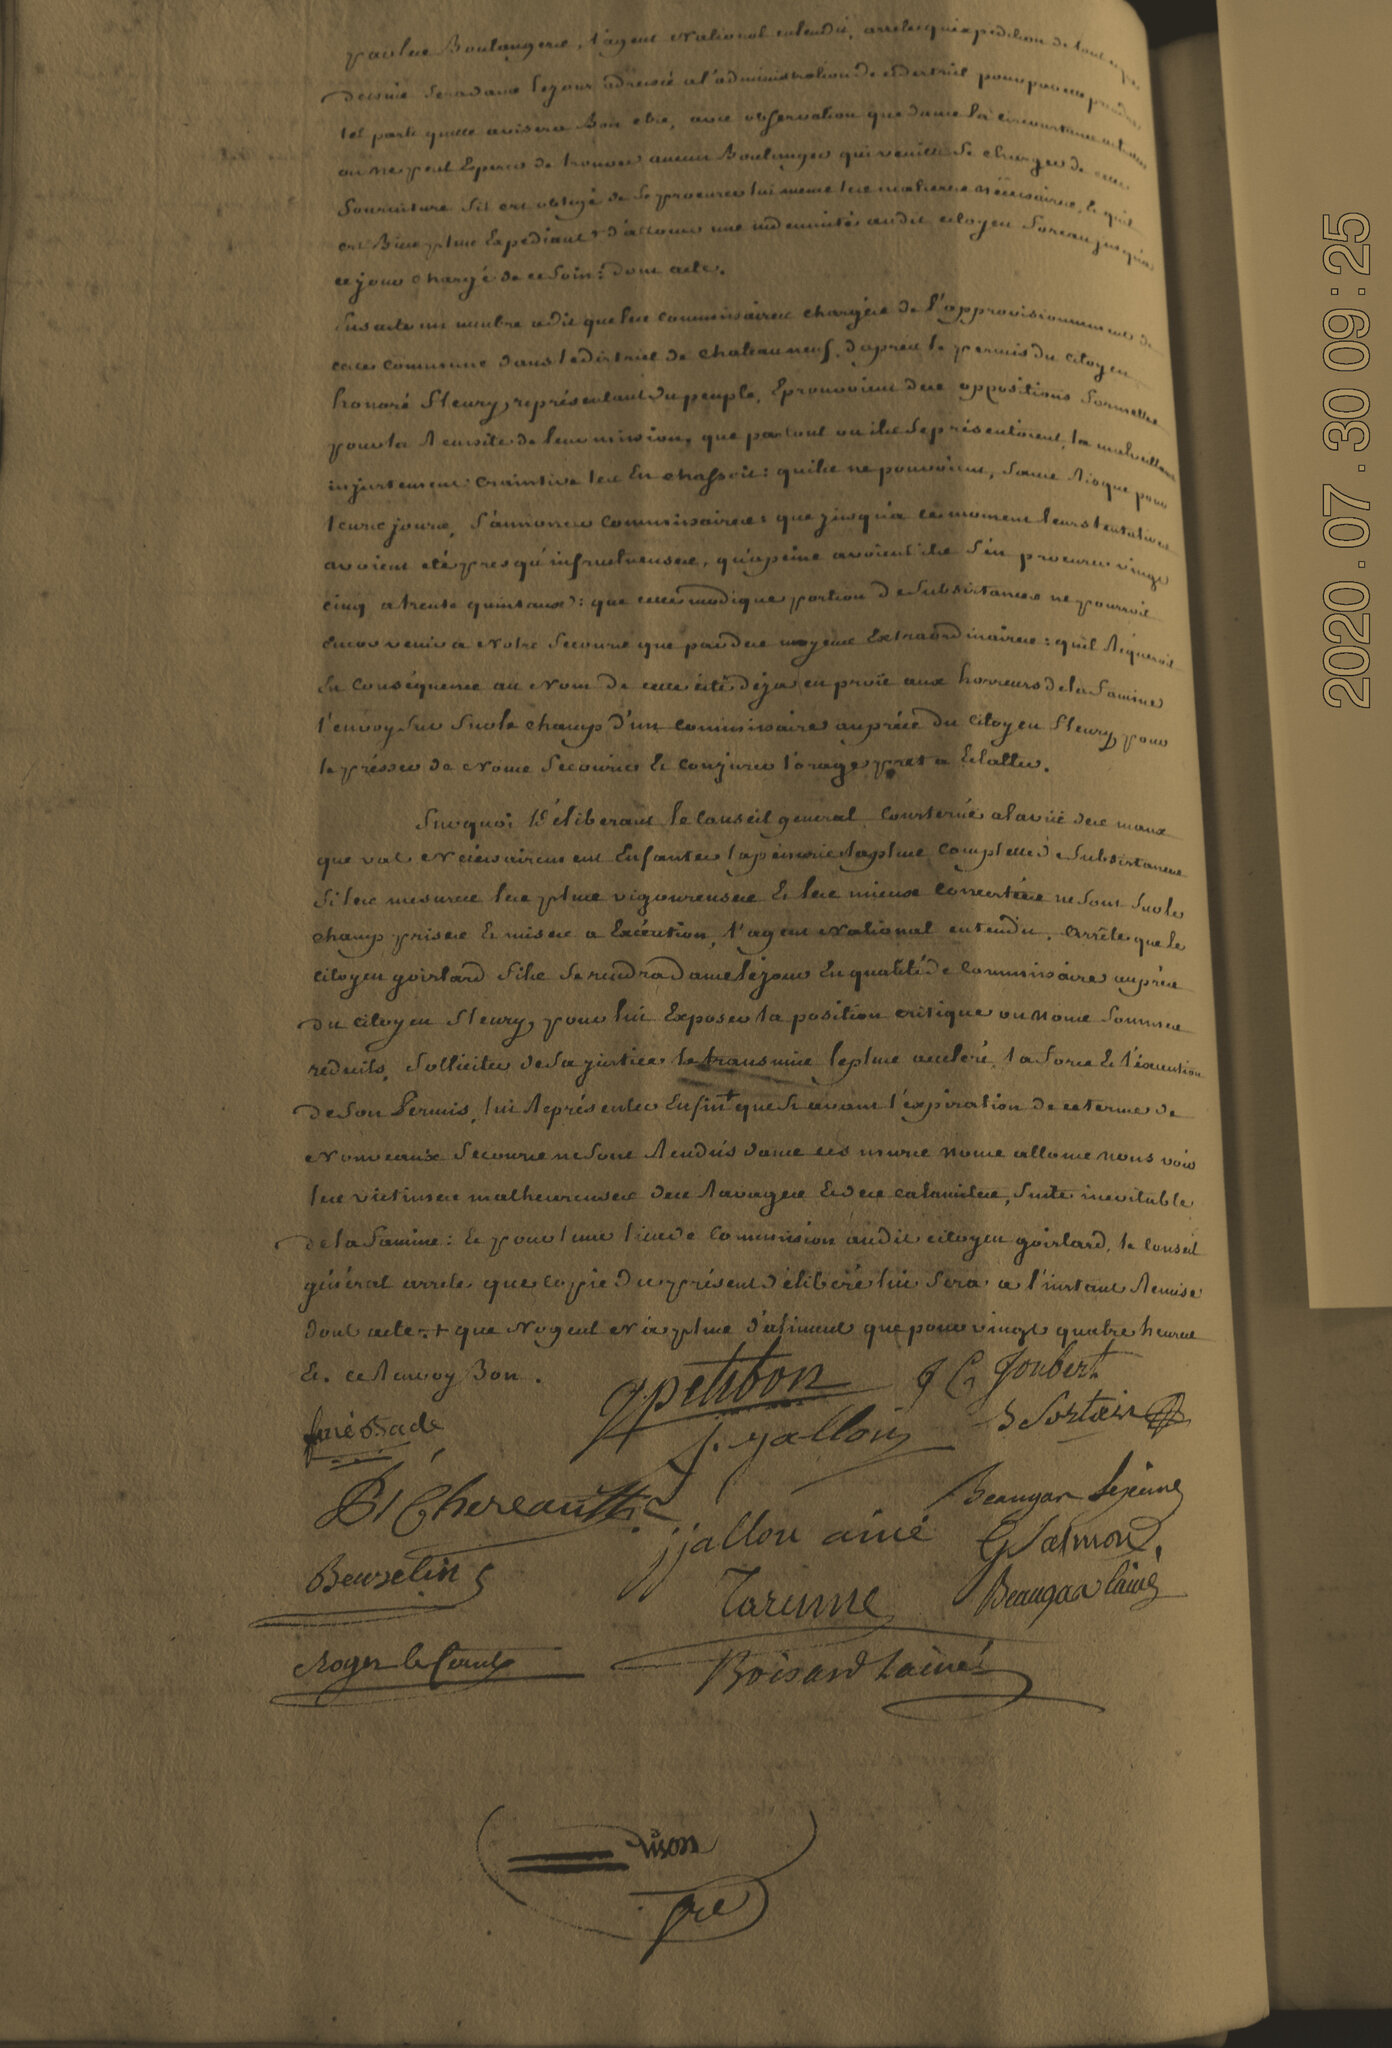 par les Boulangers, l'agent National entendu, arrete qu'expedition de tout
dessus sera dans le jour adressé a l'administration de ce district pour par elle prendre
tel parti qu'elle avisera Bon etre, avec observation que dans la circonstance
on ne peut Esperer de trouver aucun Boulanger qui veuille se charger de cette
fourniture s'il est obligé de se procurer lui meme les matieres Nécessaires, et qu'il
est Bien plus Expediant d'allouer une indemnité audit citoyen foreau jusqu'a
ce jour chargé de ce soin: dont acte.
Ensuite un membre a dit que les commissaires chargés de l'approvisionnement de
cette commune dans le district de chateauneuf, d'apres le permis du citoyen
honoré fleury, représentant du peuple, Eprouvoient des oppositions formelles
pour la Reussite de leur mission, que partout ou ils se présentoient, la malveillance
injustement craintive les En chassoit: qu'ils ne pouvoient, sans Risque pour
leurs jours, s'annoncer commissaires: que jusqu'a ce moment leurs tentatives
avoient été presqu'infructueuses, qu'apeine avoient ils s'en procurer vingt
cinq a trente quintaux: que cette modique portion de subsistances ne pourroit
encor venir a Notre secours que par des moyens Extraordinaires: qu'il Requeroit
En conséquence au Nom de cette cité déja en proie aux horreurs de la famine
l'envoy sur sur le champ d'un commissaire auprès du citoyen fleury, pour
le presser de Nous secourir Et conjurer l'orage pret a Eclatter.
Sur quoi Déliberant le Conseil general consterné a la vüe des maux
que vat Nécessairement Enfanter la pénurie la plus complette de subsistances
si les mesures les plus vigoureuses Et les mieux concertées ne sont sur le
champ prises Et mises a Exécution, l'agent National entendu, arrête que le
citoyen goislard fils se rendra dans le jour En qualité de commissaire auprès
du citoyen fleury, pour lui Exposer la position critique ou nous sommes
reduits, solliciter de sa justice le transmis le plus acceleré, la force Et l'éxecution
de son Permis, lui Représenter Enfin + que si avant l'expiration de ce terme de
Nouveaux secours ne sont Rendus dans ces murs nous allons nous voir
les victimes malheureuses des Ravages Et des calamités, suite inevitable
de la famine: Et pour tenir lieu de commission audit citoyen goislard, le conseil
général arrete que copie du présent déliberé lui sera a l'instant Remise
dont acte. + que Nogent N'a plus d'aliments que pour vingt quatre heures
Et. ce Renvoy Bon.
G petitbon
J C Joubert
j. jallon
Bade
P Chereault
Beaugar lejeune
jjallon ainé
G Salmon
Beuzelin
Tarenne
Beaugar lainé
Roger le Comte
Boisard lainé
2020.07.30 09:25